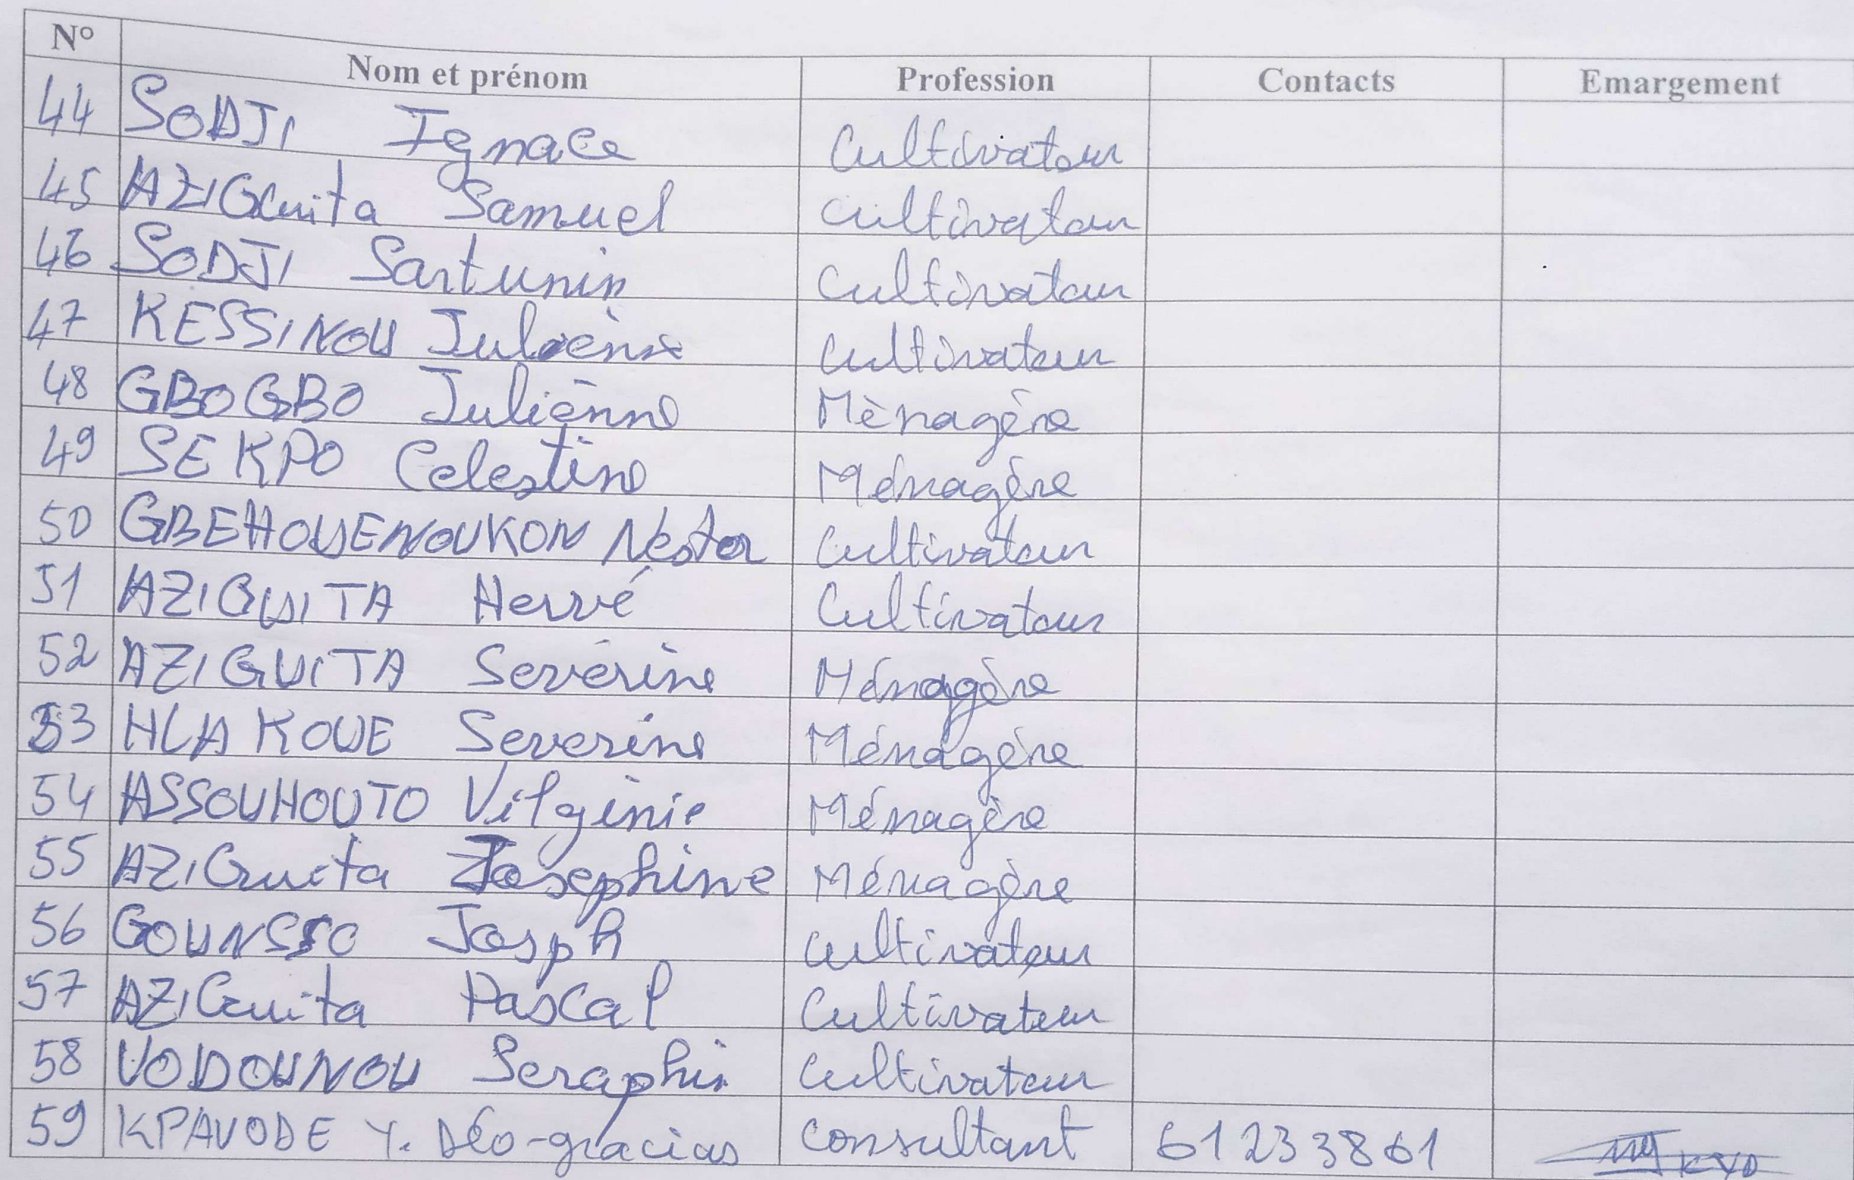 N° Nom et prénom Profession Contacts Emargement
44 SODJI Ignace Cultivateur
45 AZIGuita Samuel cultivateur
46 SODJI Sartunin Cultivateur
47 KESSINOU Juliènne cultivateur
48 GBOGBO Juliènne Mènagère
49 SEKPO Celestine Ménagère
50 GBEHOUENOUKON Nestor Cultivateur
51 AZIGUITA Hervé Cultivateur
52 AZIGUITA Sevérine Ménagère
53 HLAKOUE Severine Ménagère
54 ASSOUHOUTO Vilginie Ménagère
55 AZIGuita Josephine Ménagère
56 GOUNSSO Josph cultivateur
57 AZIGuita Pascal Cultivateur
58 VODOUNOU Seraphin Cultivateur
59 KPAVODE Y. Déo-gracias Consultant 61233861